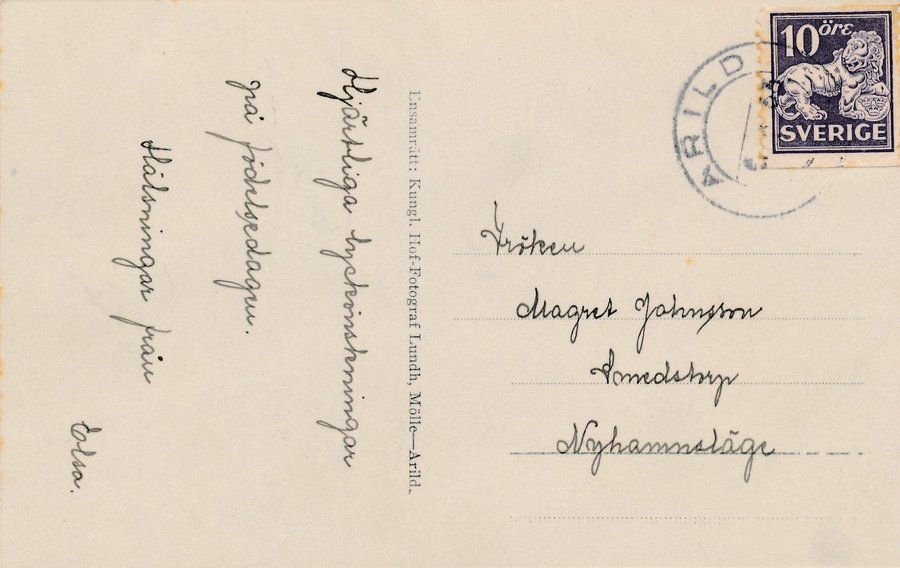 Hjärtliga lyckönskningar
på födelsedagen.
Hälsningar från
Elsa.
Ensamrätt: Kungl. Hof-Fotograf Lundh, Mölle—Arild.
ARILD
10 öre
SVERIGE
Fröken
Magret Johnsson
Smedstorp
Nyhamnsläge